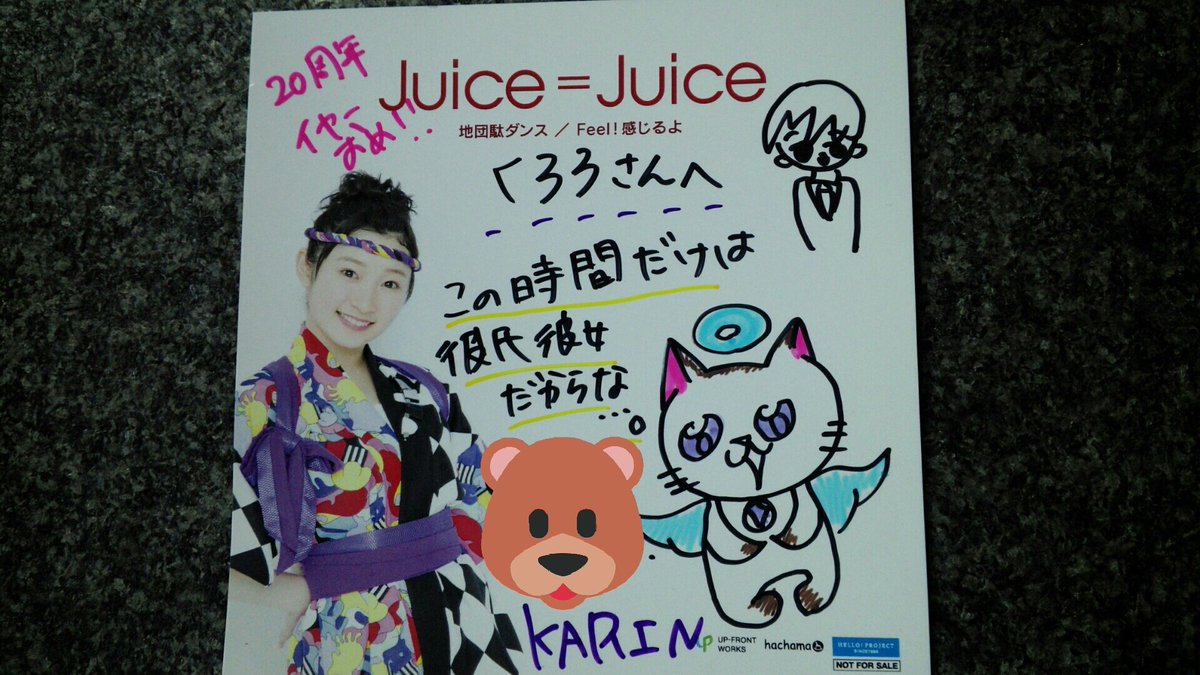 20周年
イヤー
おめ!!
Juice=Juice
地団駄ダンス / Feel!感じるよ
くろろさんへ
この時間だけは
彼氏彼女
だからな
…。
KARIN
UP-FRONT
WORKS
hachama
HELLO! PROJECT
SINCE 1998
NOT FOR SALE